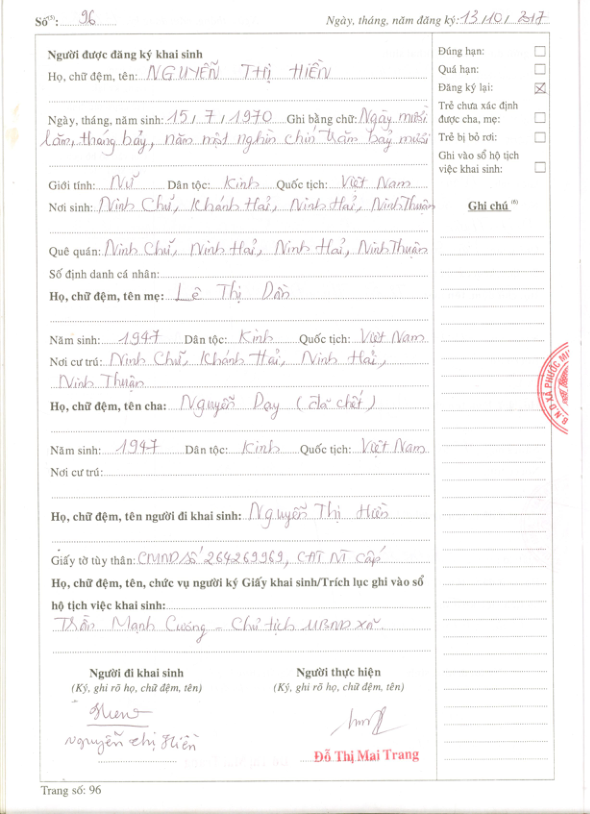 Số⁽⁵⁾: 96 Ngày, tháng, năm đăng ký: 13/10/2017
Người được đăng ký khai sinh
Họ, chữ đệm, tên: NGUYỄN THỊ HIỀN
Ngày, tháng, năm sinh: 15/7/1970 Ghi bằng chữ: Ngày mười
lăm, tháng bảy, năm một nghìn chín trăm bảy mươi
Giới tính: Nữ Dân tộc: Kinh Quốc tịch: Việt Nam
Nơi sinh: Ninh Chữ, Khánh Hải, Ninh Hải, Ninh Thuận
Quê quán: Ninh Chữ, Ninh Hải, Ninh Hải, Ninh Thuận
Số định danh cá nhân:
Họ, chữ đệm, tên mẹ: Lê Thị Dần
Năm sinh: 1947 Dân tộc: Kinh Quốc tịch: Việt Nam
Nơi cư trú: Ninh Chữ, Khánh Hải, Ninh Hải,
Ninh Thuận
Họ, chữ đệm, tên cha: Nguyễn Dạy (đã chết)
Năm sinh: 1947 Dân tộc: Kinh Quốc tịch: Việt Nam
Nơi cư trú:
Họ, chữ đệm, tên người đi khai sinh: Nguyễn Thị Hiền
Giấy tờ tùy thân: CMND số 264269969, CAT NT cấp
Họ, chữ đệm, tên, chức vụ người ký Giấy khai sinh/Trích lục ghi vào sổ
hộ tịch việc khai sinh:
Trần Mạnh Cường - Chủ tịch UBND xã
Người đi khai sinh Người thực hiện
(Ký, ghi rõ họ, chữ đệm, tên) (Ký, ghi rõ họ, chữ đệm, tên)
Hien
Nguyễn Thị Hiền
Đỗ Thị Mai Trang
Đúng hạn:
Quá hạn:
Đăng ký lại:
Trẻ chưa xác định
được cha, mẹ:
Trẻ bị bỏ rơi:
Ghi vào sổ hộ tịch
việc khai sinh:
Ghi chú ⁽⁶⁾
B.N.D XÃ PHƯỚC MI
Trang số: 96